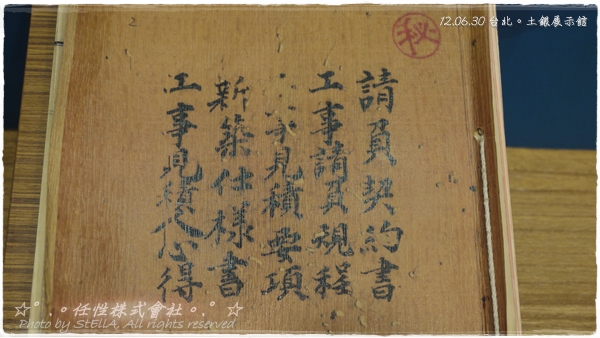 12.06.30 台北。土銀展示館
2
秘
請負契約書
工事請負規程
見積要項
新築仕様書
工事見積人心得
☆°.。任性株式會社。.° ☆
Photo by StEllA, All rights reserved